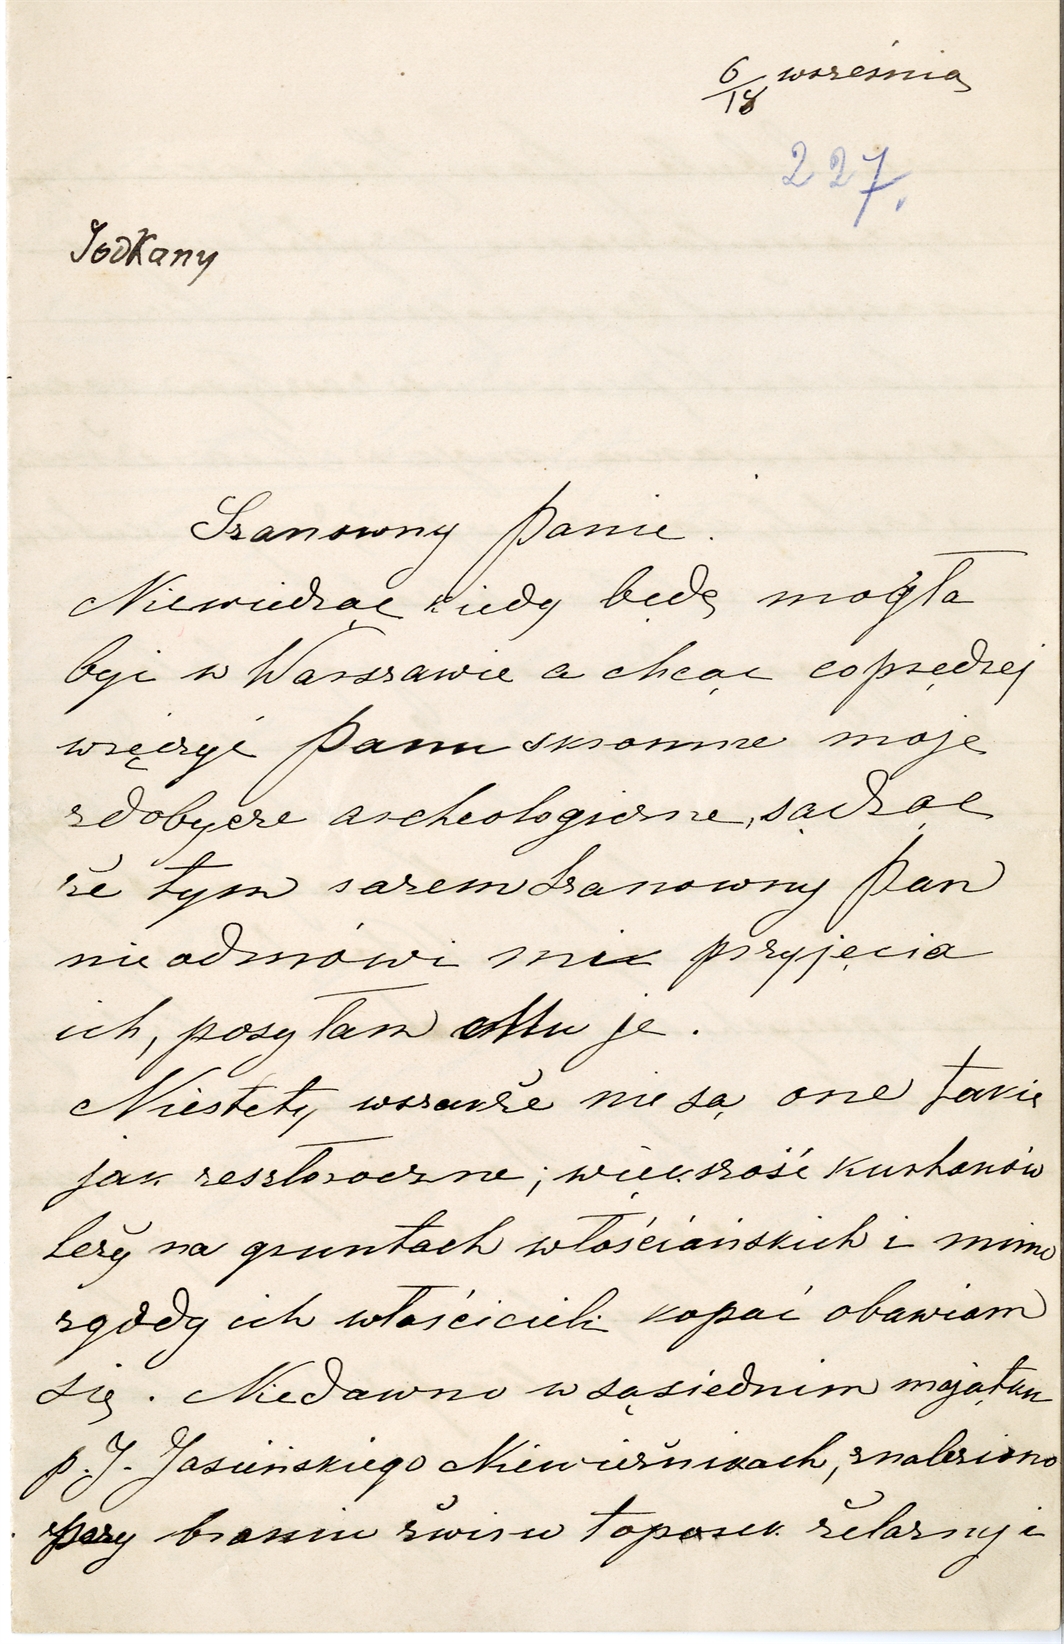 6/18 września
227.
Jodkany
Szanowny Panie.
Niewiedząc kiedy będę mogła
być w Warszawie a chcąc coprędzej
wręczyć Panu skromne moje
zdobycze archeologiczne, sądząc
że tym razem Szanowny Pan
nie odmówi mi przyjęcia
ich, posyłam je.
Niestety wszakże nie są one takie
jak zeszłoroczne; większość kurhanów
leży na gruntach włościańskich i mimo
zgody ich właścicieli kopać obawiam
się. Niedawno w sąsiednim majątku
p. J. Jasieńskiego Niewieżnikach, znaleziono
przy braniu żwiru toporek żelazny i